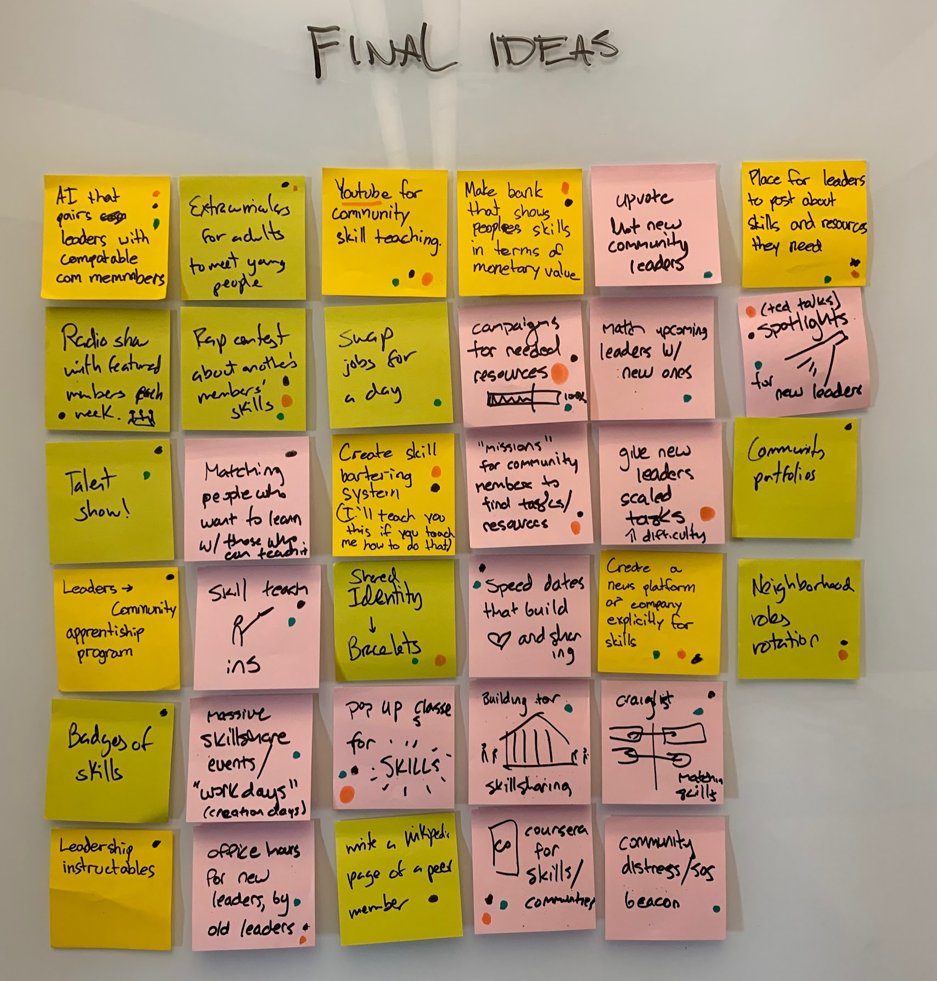 FINAL IDEAS
AI that
pairs
leaders with
compatable
com memnabers
Extracurriculars
for adults
to meet young
people
Youtube for
community
skill teaching.
Make bank
that shows
peoples skills
in terms of
monetary value
upvote
hot new
community
leaders
Place for leaders
to post about
skills and resources
they need
Radio show
with featured
members each
week.
Rap contest
about another
members'
skills
Swap
jobs for
a day
campaigns
for needed
resources
100%
Match upcoming
leaders w/
new ones
(ted talks)
spotlights
for new leaders
Talent
show!
Matching
people who
want to learn
w/ those who
can teach it
Create skill
bartering
system
(I'll teach you
this if you teach
me how to do that)
"missions"
for community
members to
find tasks/
resources
give new
leaders
scaled
tasks
↑ difficulty
Community
portfolios
Leaders →
Community
apprentiship
program
Skill teach
ins
Shared
Identity
↓
Bracelets
Speed dates
that build
♡ and shar
ing
Create a
news platform
or company
explicitly for
skills
Neighborhood
roles
rotation
Badges of
skills
Massive
skillshare
events/
"workdays"
(creation days)
pop up classe
s
for
SKILLS
Building for
skillsharing
craigslist
Matching
skills
Leadership
instructables
office hours
for new
leaders, by
old leaders
write a Wikipedia
page of a peer
member
co
coursera
for
skills/
communities
community
distress/sos
beacon